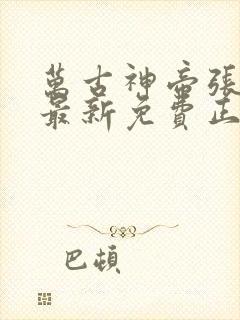 萬古神帝張
最新免費正
巴頓